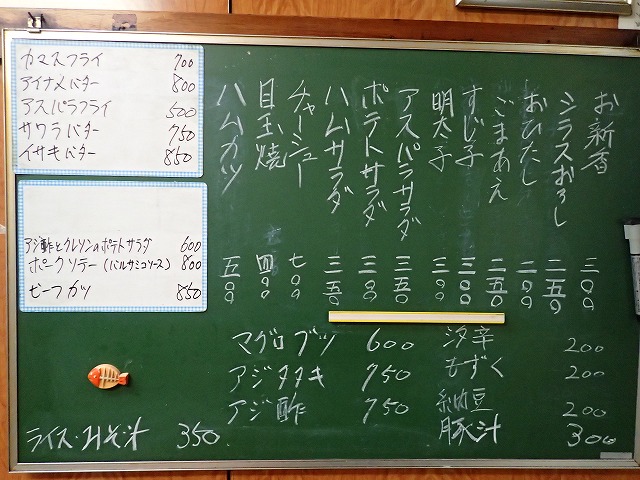 カマスフライ 700
アイナメバター 800
アスパラフライ 500
サワラバター 750
イサキバター 850
アジ酢とクレソンのポテトサラダ 600
ポークソテー(バルサミコソース) 800
ビーフカツ 850
お新香 三〇〇
シラスおろし 二五〇
おひたし 二〇〇
ごまあえ 二五〇
すじ子 三〇〇
明太子 三〇〇
アスパラサラダ 三五〇
ポテトサラダ 三〇〇
ハムサラダ 三五〇
チャーシュー 七〇〇
目玉焼 四〇〇
ハムカツ 五〇〇
マグロブツ 600
アジタタキ 750
アジ酢 750
汐辛 200
もずく 200
納豆 200
豚汁 300
ライス・みそ汁 350